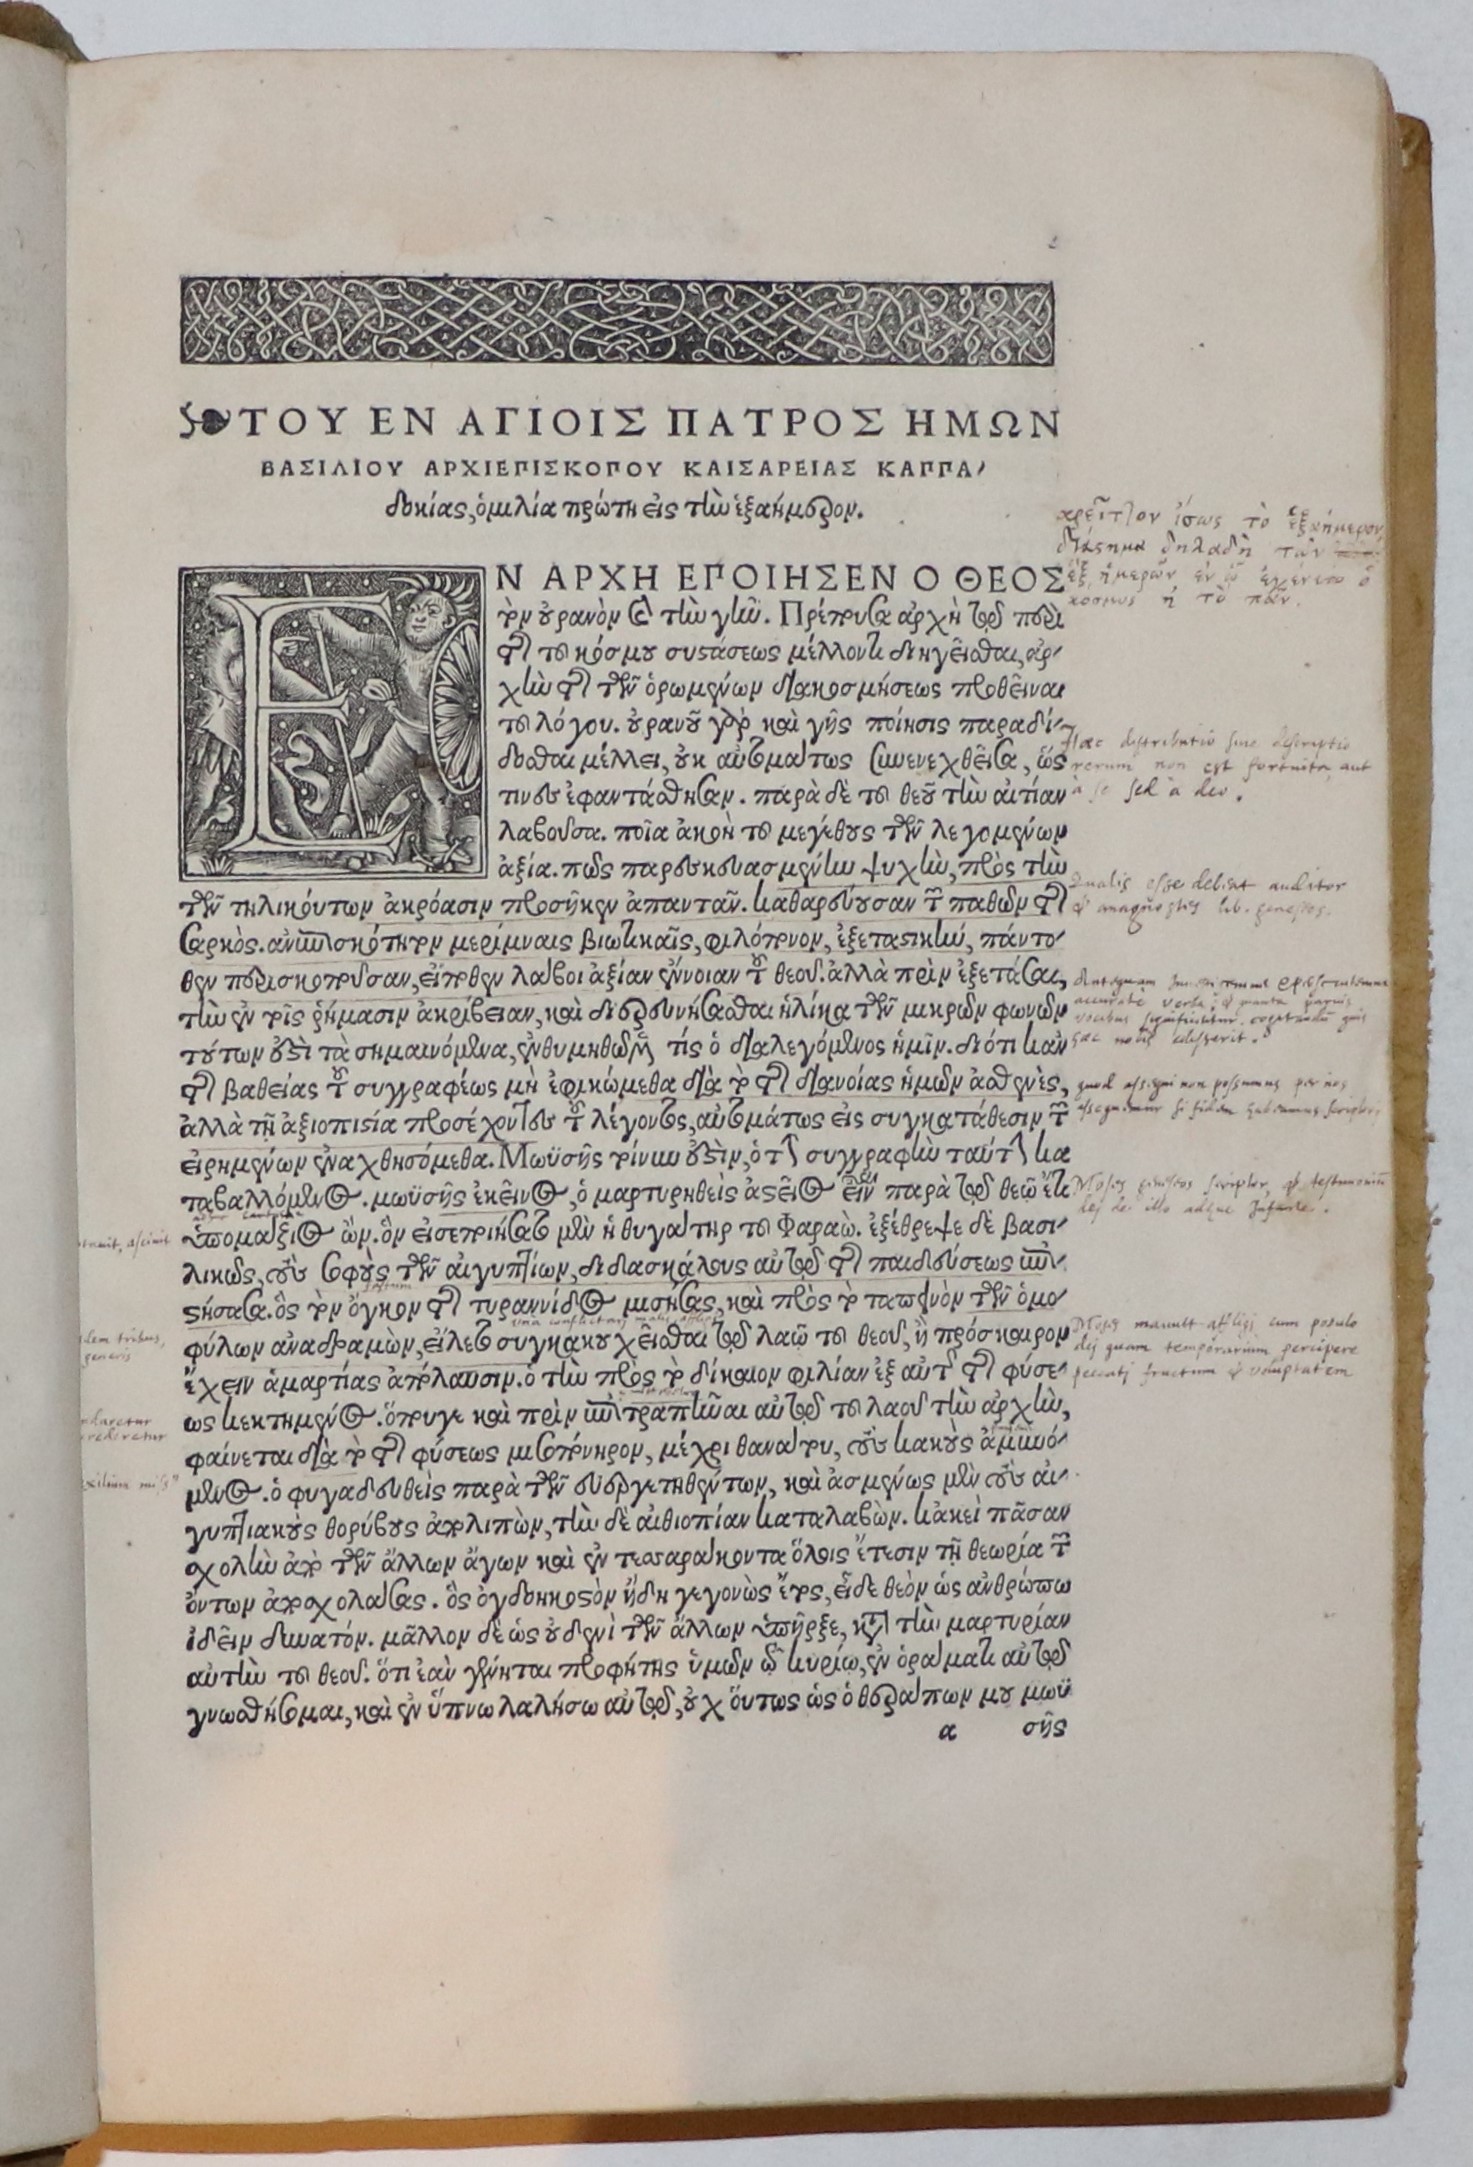 ΤΟΥ ΕΝ ΑΓΙΟΙΣ ΠΑΤΡΟΣ ΗΜΩΝ
ΒΑΣΙΛΙΟΥ ΑΡΧΙΕΠΙΣΚΟΠΟΥ ΚΑΙΣΑΡΕΙΑΣ ΚΑΠΠΑ-
δοκίας, ὁμιλία πρώτη εἰς τὴν ἑξαήμερον.
ΕΝ ΑΡΧΗ ΕΠΟΙΗΣΕΝ Ο ΘΕΟΣ
τὸν οὐρανὸν καὶ τὴν γῆν. Πρέπουσα ἀρχὴ τῷ περὶ
τῆς τοῦ κόσμου συστάσεως μέλλοντι διηγεῖσθαι, ἀρ-
χὴν τῆς τῶν ὁρωμένων διακοσμήσεως προθεῖναι
τοῦ λόγου. οὐρανοῦ γὰρ καὶ γῆς ποίησις παραδί-
δοσθαι μέλλει, οὐκ αὐτομάτως συνενεχθεῖσα, ὥς
τινες ἐφαντάσθησαν. παρὰ δὲ τοῦ θεοῦ τὴν αἰτίαν
λαβοῦσα. ποῖα ἀκοὴ τοῦ μεγέθους τῶν λεγομένων
ἀξία. πῶς παρεσκευασμένην ψυχὴν, πρὸς τὴν
τῶν τηλικούτων ἀκρόασιν προσῆκεν ἀπαντᾶν. καθαρεύουσαν τῶν παθῶν τῆς
σαρκὸς. ἀνεπισκότητον μερίμναις βιωτικαῖς, φιλόπονον, ἐξεταστικήν, πάντο-
θεν περισκοποῦσαν, εἴποθεν λάβοι ἀξίαν ἔννοιαν τοῦ θεοῦ. ἀλλὰ πρὶν ἐξετάσαι,
τὴν ἐν τοῖς ῥήμασιν ἀκρίβειαν, καὶ διερευνήσασθαι ἡλίκα τῶν μικρῶν φωνῶν
τούτων ἐστὶ τὰ σημαινόμενα, ἐνθυμηθῶμεν τίς ὁ διαλεγόμενος ἡμῖν. διότι κἂν
τῆς βαθείας τοῦ συγγραφέως μὴ ἐφικώμεθα διὰ τὸ τῆς διανοίας ἡμῶν ἀσθενὲς,
ἀλλὰ τῇ ἀξιοπιστία προσέχοντες τοῦ λέγοντος, αὐτομάτως εἰς συγκατάθεσιν τῶν
εἰρημένων ἐναχθησόμεθα. Μωϋσῆς τοίνυν ἐστὶν, ὁ τὴν συγγραφὴν ταύτην κα
ταβαλλόμενος. μωϋσῆς ἐκεῖνος, ὁ μαρτυρηθεὶς ἀστεῖος εἶναι παρὰ τῷ θεῷ ἔτι
ὑπομάζιος ὤν. ὃν εἰσεποιήσατο μὲν ἡ θυγάτηρ τοῦ Φαραὼ. ἐξέθρεψε δὲ βασι-
λικῶς, τοὺς σοφοὺς τῶν αἰγυπτίων, διδασκάλους αὐτῷ τῆς παιδεύσεως ἐπι-
στήσασα. ὃς τὸν ὄγκον τῆς τυραννίδος μισήσας, καὶ πρὸς τὸ ταπεινὸν τῶν ὁμο-
φύλων ἀναδραμὼν, εἵλετο συγκακουχεῖσθαι τῷ λαῷ τοῦ θεοῦ, ἢ πρόσκαιρον
ἔχειν ἁμαρτίας ἀπόλαυσιν. ὁ τὴν πρὸς τὸ δίκαιον φιλίαν ἐξ αὐτῆς τῆς φύσε-
ως κεκτημένος. ὅπουγε καὶ πρὶν ἐπιτραπῆναι αὐτῷ τοῦ λαοῦ τὴν ἀρχὴν,
φαίνεται διὰ τὸ τῆς φύσεως μισοπόνηρον, μέχρι θανάτου, τοὺς κακοὺς ἀμυνό-
μενος. ὁ φυγαδευθεὶς παρὰ τῶν εὐεργετηθέντων, καὶ ἀσμένως μὲν τοὺς αἰ-
γυπτιακοὺς θορύβους ἀπολιπὼν, τὴν δὲ αἰθιοπίαν καταλαβὼν. κἀκεῖ πᾶσαν
σχολὴν ἀπὸ τῶν ἄλλων ἄγων καὶ ἐν τεσσαράκοντα ὅλοις ἔτεσιν τῇ θεωρία τῶν
ὄντων ἀποσχολάσας. ὃς ὀγδοηκοστὸν ἤδη γεγονὼς ἔτος, εἶδε θεὸν ὡς ἀνθρώπω
ἰδεῖν δυνατόν. μᾶλλον δὲ ὡς οὐδενὶ τῶν ἄλλων ὑπῆρξε, κατὰ τὴν μαρτυρίαν
αὐτὴν τοῦ θεοῦ. ὅτι ἐὰν γένηται προφήτης ὑμῶν τῷ κυρίῳ, ἐν ὁράματι αὐτῷ
γνωσθήσομαι, καὶ ἐν ὕπνω λαλήσω αὐτῷ, οὐχ οὕτως ὡς ὁ θεράπων μου μωϋ
α σῆς
ἴσως τὸ ἑξαήμερον,
διάστημα δηλαδὴ τῶν
ἓξ ἡμερῶν ἐν ᾧ ἐγένετο ὁ
κόσμος ἢ τὸ πᾶν.
Haec distributio sive descriptio
rerum non est fortuita, aut
à se sed à deo.
Qualis esse debeat auditor
lib. geneseos.
quod assequi non possumus per nos
assequemur si fidem habeamus scriptori
Moses mavult affligi cum populo
dei quam temporarium percipere
peccati fructum & voluptatem